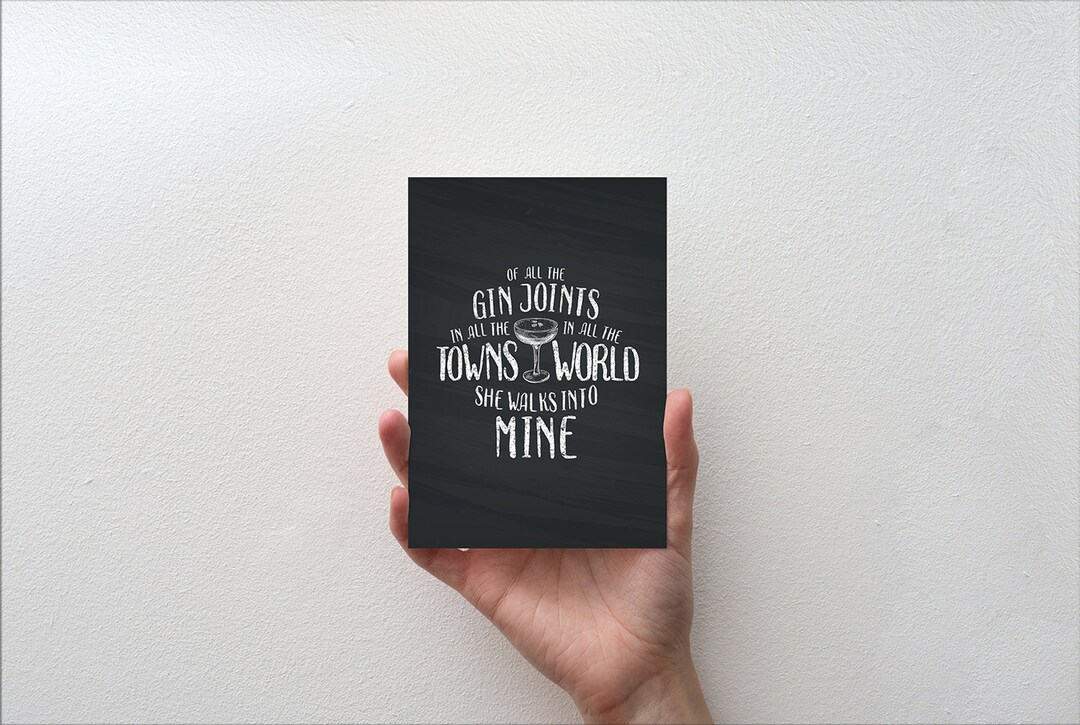 OF ALL THE
GIN JOINTS
IN ALL THE IN ALL THE
TOWNS WORLD
SHE WALKS INTO
MINE